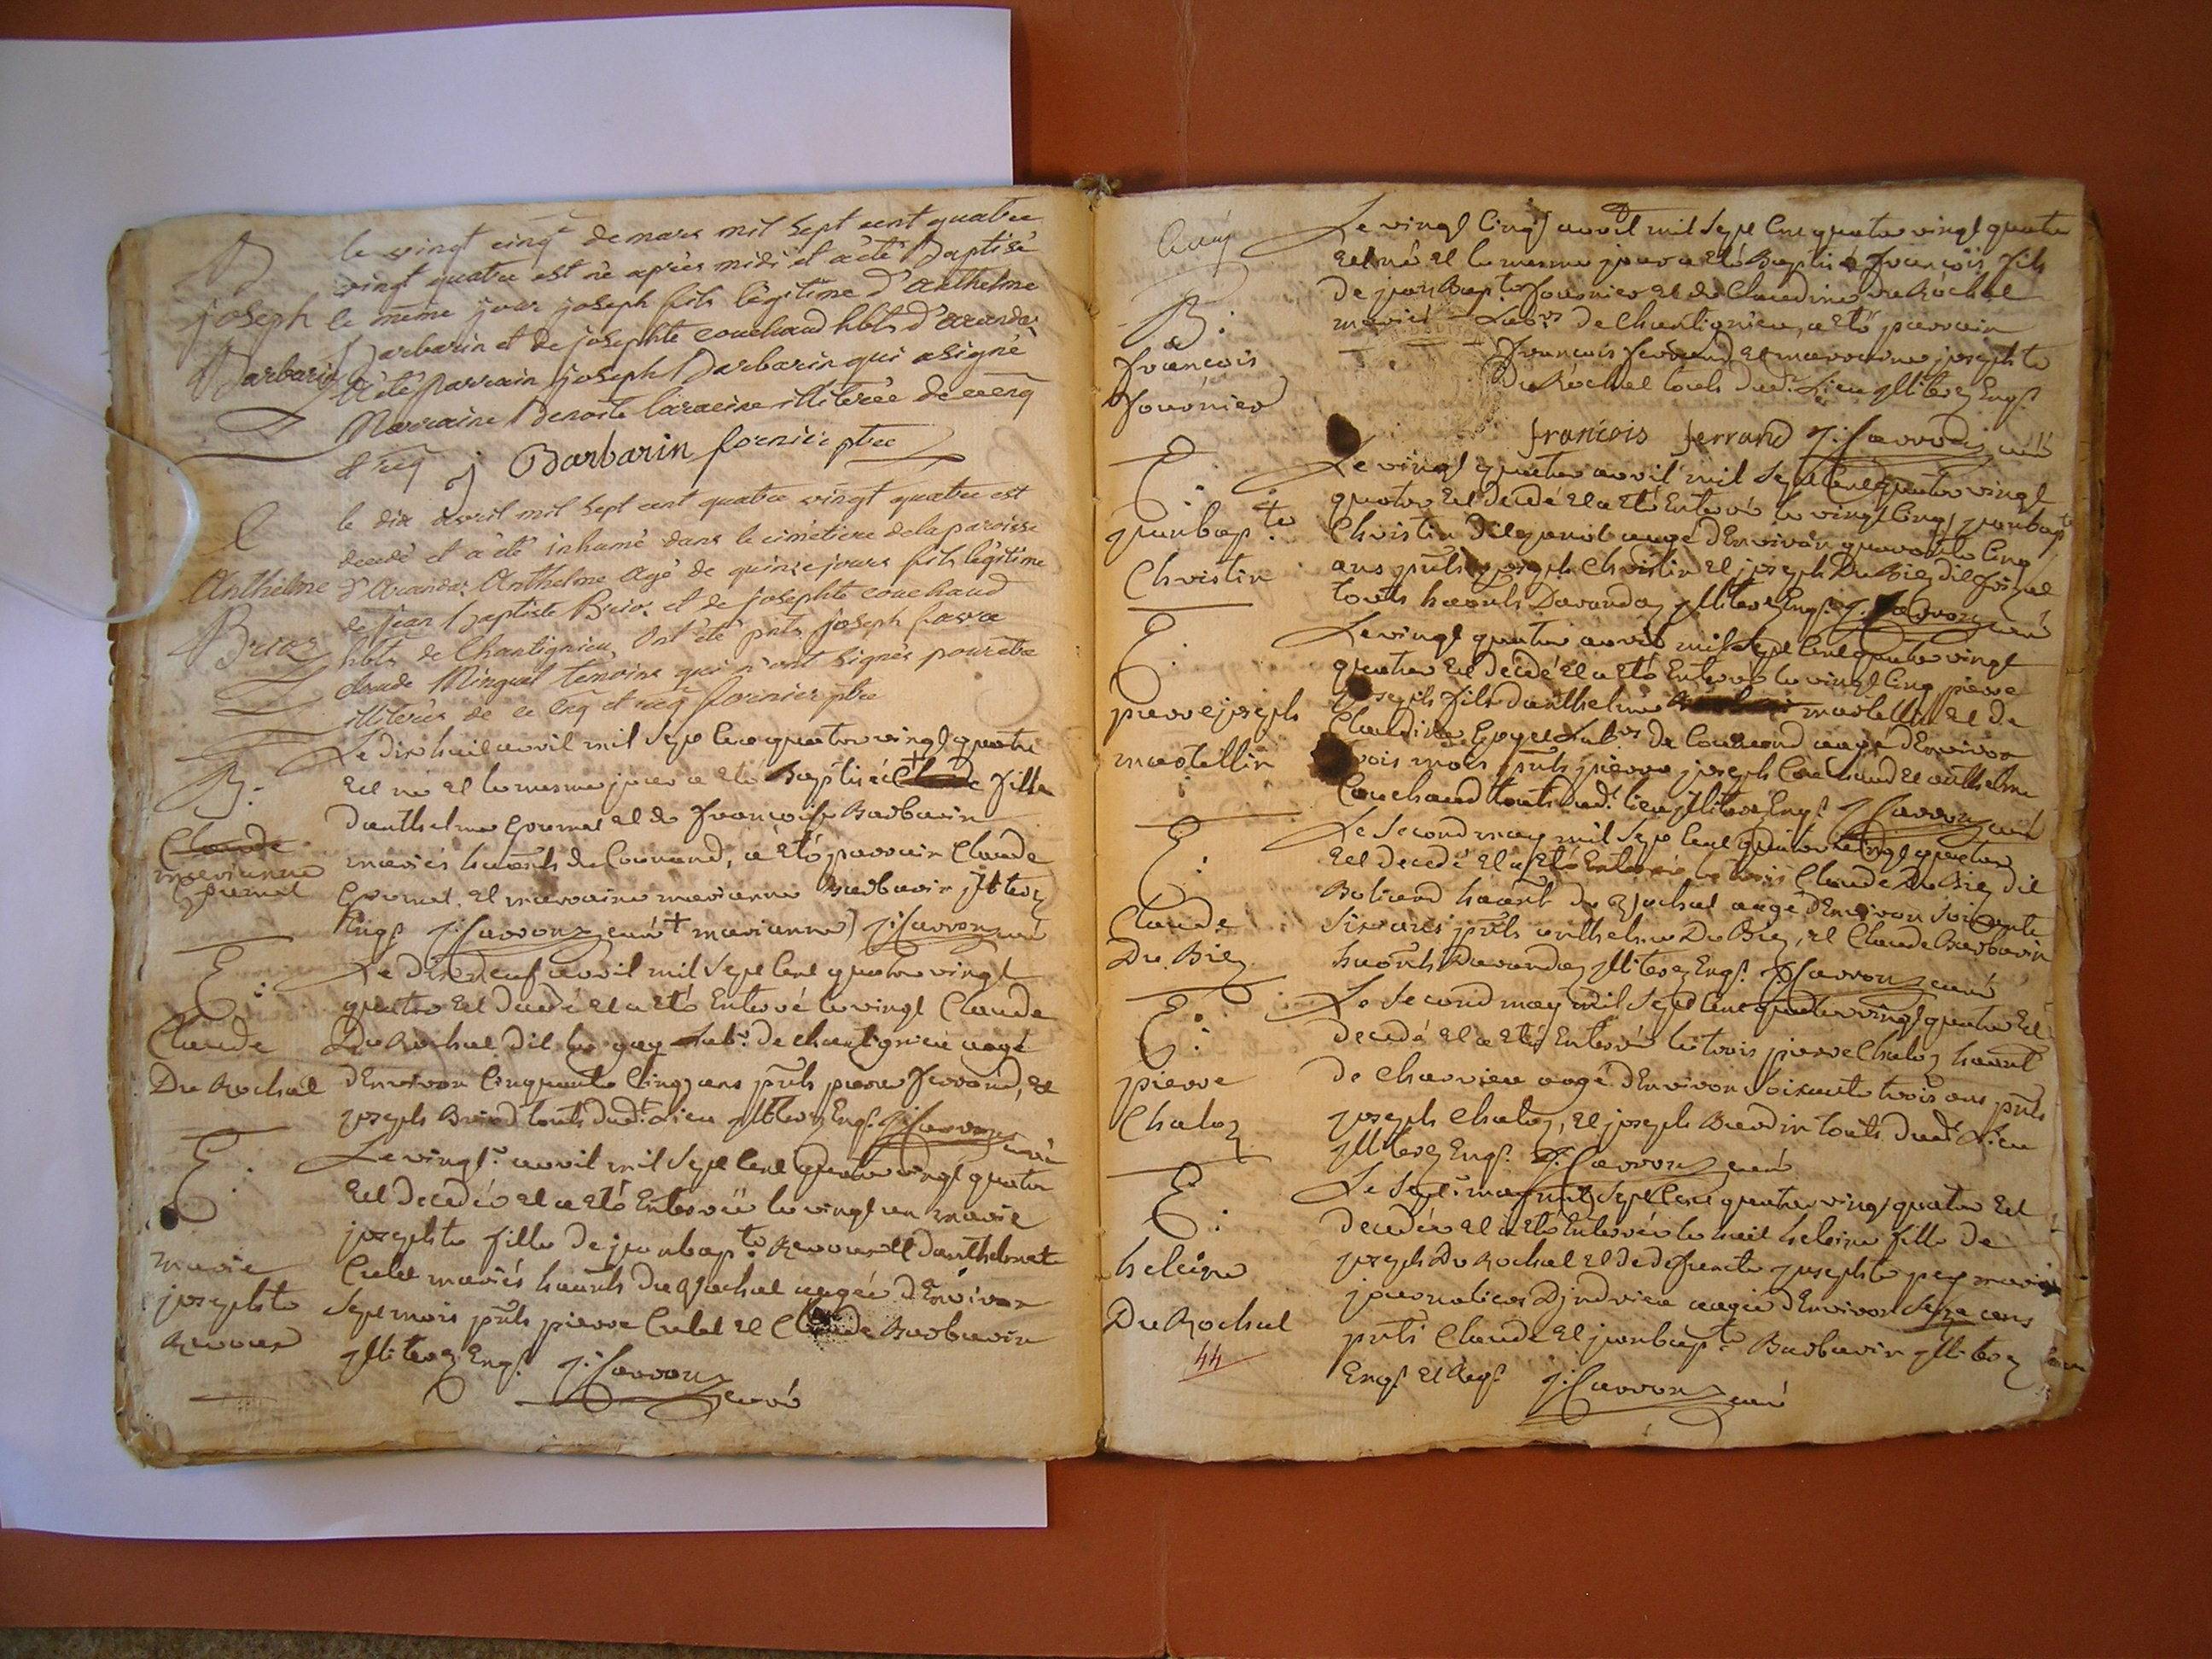 B
joseph
Barbarin
le vingt cinq de mars mil sept cent quatre
vingt quatre est né après midi et a été Baptisé
le même jour joseph fils légitime d'anthelme
Barbarin et de josephte couchaud hbts d'arandas
a été Parrain joseph Barbarin qui a signé
Marraine Benoite laracine illiterée de ce enq
& req j Barbarin fornier ptre
E
Anthelme
Brior
le dix avril mil sept cent quatre vingt quatre est
decedé et a été inhumé dans le cimétiere de la paroisse
d'Arandas Anthelme Agé de quinze jours fils légitime
de jean Baptiste Brior et de josephte couchaud
hbts de Chantignieu, Ont été pnts joseph favre
claude Minguet temoins qui n'ont signés pour être
illiterés de ce enq et req fornier ptre
B.
Claude
marianne
Gournal
Le dix huit avril mil sept cent quatre vingt quatre
Est né Et le mesme jour a Eté Baptisée Claude fille
danthelme Et de françoise Barbarin
mariés de Counand, a Eté parrain Claude
Et marraine marianne Barbarin jlliterez
Enqs J: Carron curé + marianne) J: Carron curé
E:
Claude
Du Rochat
Le Dixneuf avril mil sept Cent quatre vingt
quatre Est decedé Et a Eté Enterré le vingt Claude
Du Rochat dit le gay Labr. de chantignieu aagé
dEnviron Cinquante Cinq ans pnts pierre ferrand, Et
joseph tous dud. Lieu jlliterez Enqs. J: Carron curé
E:
marie
josephte
Revour
Le vingt avril mil sept Cent quatre vingt quatre
Est decedée Et a Eté Enterrée le vingt un marie
josephte fille de jeanbapte. danthelmete
Culet mariés du Rochat aagée dEnviron
Sept mois pnts pierre Culet Et Claude Barbarin
jlliterez Enqs. J: Carron
curé
B:
françois
fournier
Le vingt Cinq avril mil sept Cent quatre vingt quatre
Est né Et le mesme jour a Eté Baptisé françois fils
de jean Bapte. fournier Et de Claudine du Rochat
mariés Labrs. de Chantignieu, a Eté parrain
françois ferrand Et marraine josephte
Du Rochat touts dud. Lieu jlliterez Enqs.
francois ferrand J: Carron curé
E:
jeanbapte.
Christin
Le vingt quatre avril mil sept Cent quatre vingt
quatre Est decedé Et a Eté Enterré le vingt Cinq jeanbapte
Christin dit aagé dEnviron quarante Cinq
ans pnts joseph Christin Et joseph Du Biez dit
touts Darandaz jlliterez Enqs. J: Carron curé
E:
pierre joseph
martellin
Le vingt quatre avril mil sept Cent quatre vingt
quatre Est decedé Et a Eté Enterré le vingt Cinq pierre
joseph fils danthelme martellin Et de
Claudine Labrs de Counand aagé dEnviron
trois mois pnts pierre joseph Couchaud Et anthelme
Couchaud touts dud. lieu jlliterez Enqs. J: Carron curé
E:
Claude
Du Biez
Le Second may mil sept Cent quatre vingt quatre
Est decedé Et a Eté Enterré le trois Claude Du Biez dit
du Rochat aagé dEnviron soixante
six ans pnts anthelme Du Biez, Et Claude Barbarin
Darandaz jlliterez Enqs. J: Carron curé
E:
pierre
Chaloz
Le Second may mil sept Cent quatre vingt quatre Est
decedé Et a Eté Enterré le trois pierre Chaloz
de Charvieu aagé dEnviron soixante trois ans pnts
joseph Chaloz, Et joseph Bardin touts dud. Lieu
jlliterez Enqs. J: Carron curé
E:
heleine
Du Rochat
44
Le sept may mil sept Cent quatre vingt quatre Est
decedée Et a Eté Enterrée le huit heleine fille de
joseph Du Rochat Et de deffuncte josephte pey mariés
journaliers aagée dEnviron seze ans
pnts Claude Et jeanbapte. Barbarin jlliterez
Enqs. Et Reqs. J: Carron curé